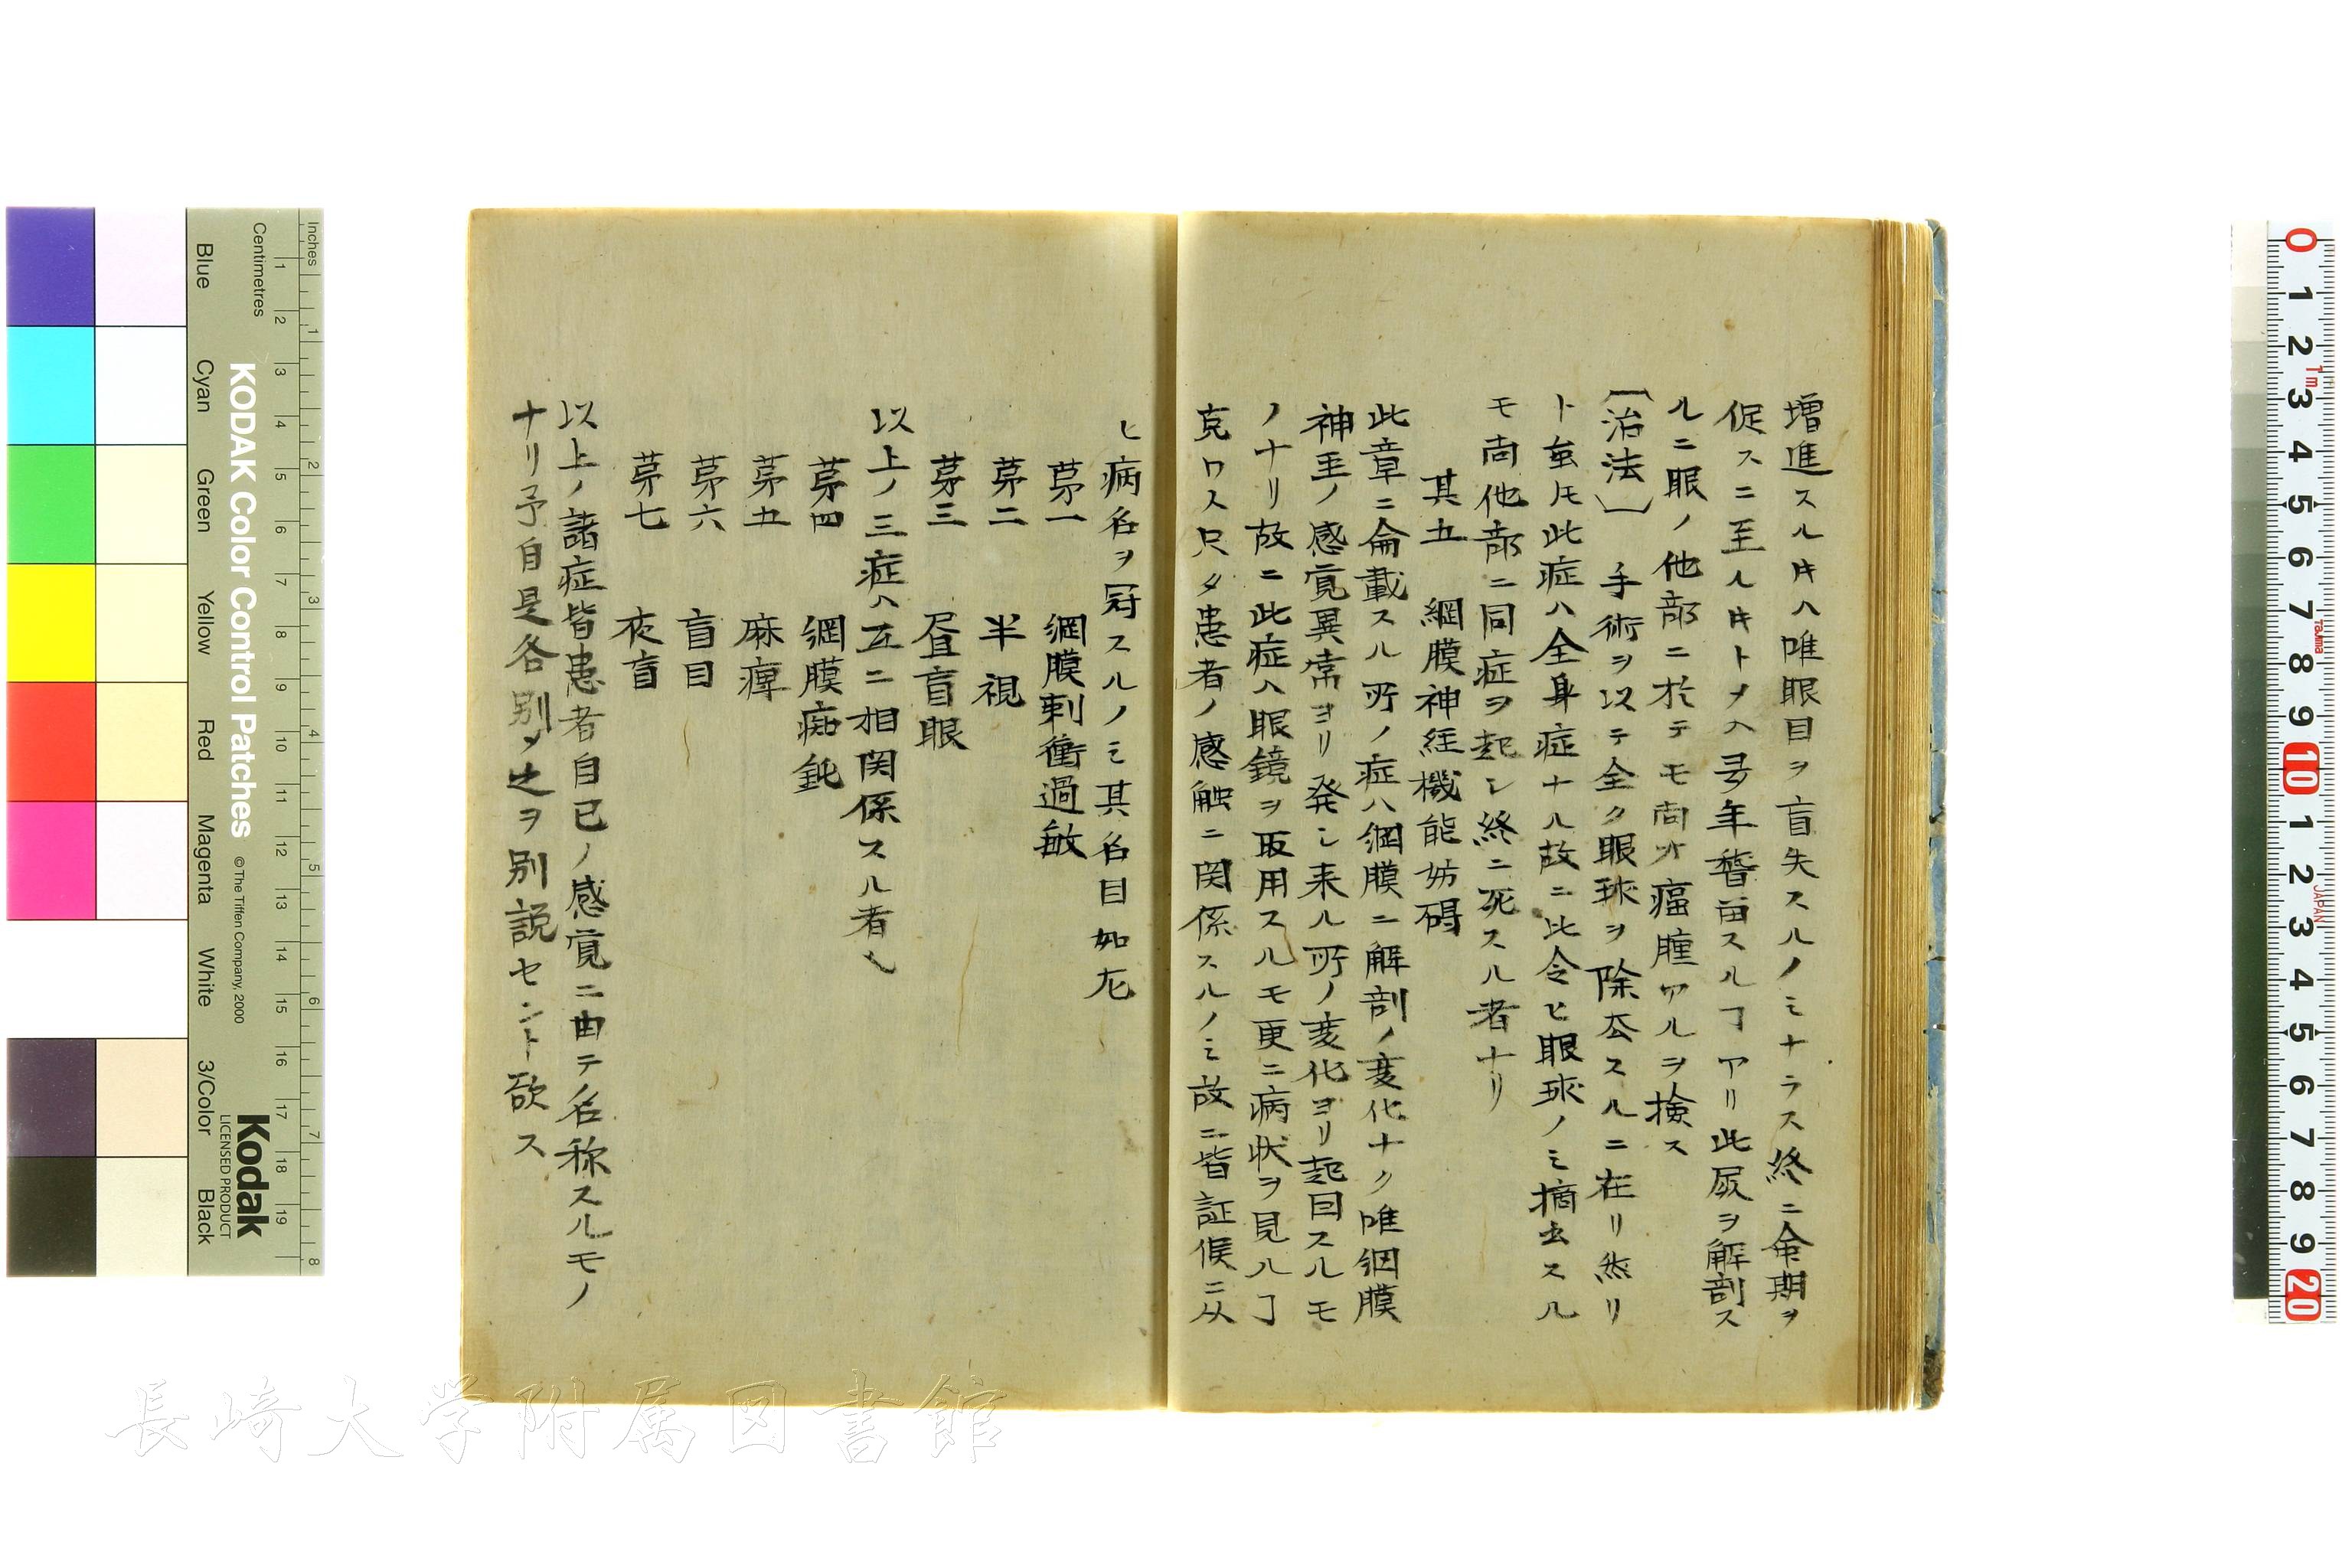 増進スル𪜈ハ唯眼目ヲ盲失スルノミナラス終ニ命期ヲ
促スニ至ル𪜈トメハ 年 スルヿアリ此屍ヲ解剖ス
ルニ眼ノ他部ニ於テモ尚 瘟腫アルヲ検ス
〔治法〕 手術ヲ以テ全ク眼球ヲ除去スルニ在リ然リ
ト 𪜈此症ハ全身症ナル故ニ比令ヒ眼球ノミ摘去スル
モ尚他部ニ同症ヲ起シ終ニ死スル者ナリ
其五 網膜神経機能妨碍
此章ニ侖載スル所ノ症ハ網膜ニ解剖ノ変化ナク唯網膜
神圣ノ感覚異常ヨリ発シ来ル所ノ変化ヨリ起因スルモ
ノナリ故ニ此症ハ眼鏡ヲ取用スルモ更ニ病状ヲ見ルヿ
克ワス只タ患者ノ感触ニ関係スルノミ故ニ皆証候ニ从
ヒ病名ヲ冠スルノミ其名目如左
第一 網膜刺衝過敏
第二 半視
第三 昼盲眼
以上ノ三症ハ互ニ相関係スル者也
第四 網膜痴鈍
第五 麻痺
第六 盲目
第七 夜盲
以上ノ諸症皆患者自己ノ感覚ニ由テ名称スルモノ
ナリ予自是各別ヽ之ヲ別説セント欲ス
長崎大学附属図書館
KODAK Color Control Patches
© The Tiffen Company, 2000
Kodak
LICENSED PRODUCT
Inches
Centimetres
Blue Cyan Green Yellow Red Magenta White 3/Color Black
1 2 3 4 5 6 7 8
1 2 3 4 5 6 7 8 9 10 11 12 13 14 15 16 17 18 19
0 1 2 3 4 5 6 7 8 9 10 1 2 3 4 5 6 7 8 9 20
1m
Tajima
JAPAN